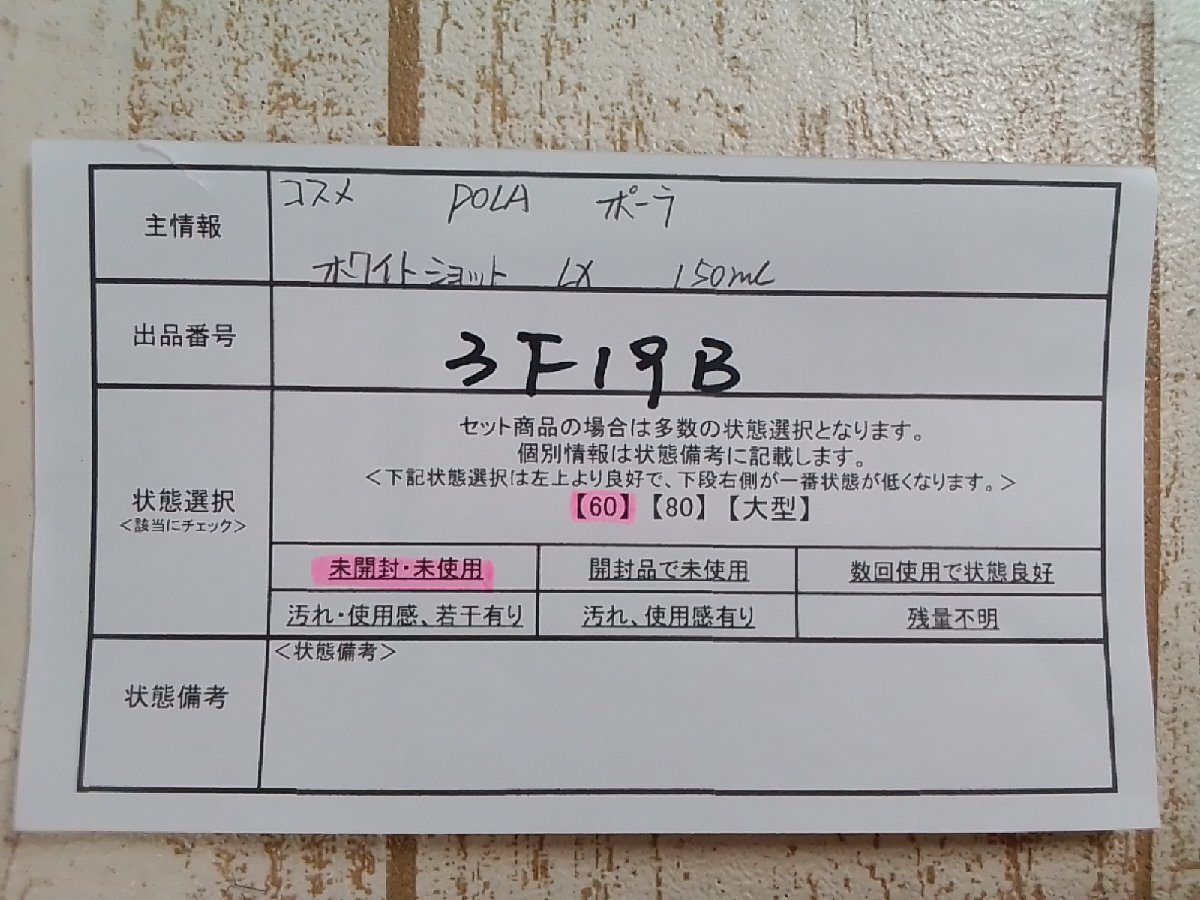 主情報
コスメ POLA ポーラ
ホワイトショット LX 150mL
出品番号
3F19B
状態選択
<該当にチェック>
セット商品の場合は多数の状態選択となります。
個別情報は状態備考に記載します。
<下記状態選択は左上より良好で、下段右側が一番状態が低くなります。>
【60】【80】【大型】
未開封・未使用 開封品で未使用 数回使用で状態良好
汚れ・使用感、若干有り 汚れ、使用感有り 残量不明
状態備考
<状態備考>